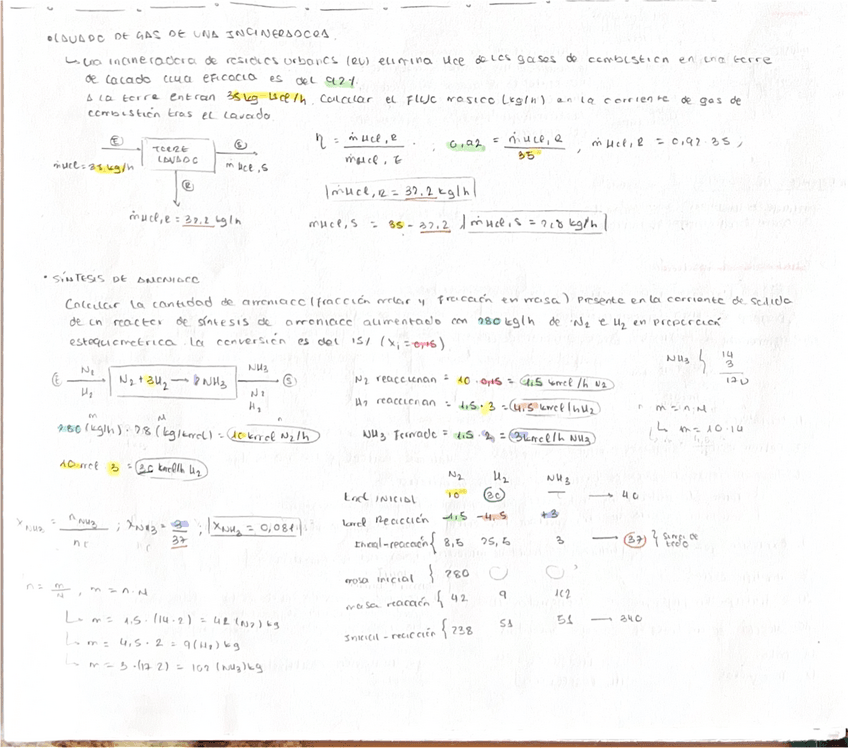 • LAVADO DE GAS DE UNA INCINERADORA.
↳ Una incineradora de residuos urbanos (RU) elimina HCl de los gases de combustión en una torre
de lavado cuya eficacia es del 92%.
A la torre entran 35 kg HCl/h. Calcular el flujo másico (kg/h) en la corriente de gas de
combustión tras el lavado.
Ⓔ TORRE LAVADO Ⓢ
ṁHCl = 35 kg/h ṁHCl,S
Ⓡ
ṁHCl,R = 32.2 kg/h
η = ṁHCl,R / ṁHCl,E ; 0,92 = ṁHCl,R / 35 ; ṁHCl,R = 0,92·35 ;
ṁHCl,R = 32.2 kg/h
ṁHCl,S = 35 - 32.2 ṁHCl,S = 2,8 kg/h
• SÍNTESIS DE AMONIACO
Calcular la cantidad de amoniaco (fracción molar y fracción en masa) presente en la corriente de salida
de un reactor de síntesis de amoniaco alimentado con 280 kg/h de N₂ e H₂ en proporción
estequiométrica. La conversión es del 15% (X₁ = 0,15)
Ⓔ N₂ H₂ N₂ + 3H₂ → 2NH₃ NH₃ N₂ H₂ Ⓢ
m M n
280 (kg/h) : 28 (kg/kmol) = 10 kmol N₂/h
10 mol 3 = 30 kmol/h H₂
N₂ reaccionan = 10 · 0,15 = 1,5 kmol/h N₂
H₂ reaccionan = 1,5 · 3 = 4,5 kmol/h H₂
NH₃ formado = 1,5 · 2 = 3 kmol/h NH₃
NH₃ { 14
3
m = n·M
↳ m = 10·14
N₂ H₂ NH₃
kmol INICIAL 10 30 — → 40
kmol Reacción -1,5 -4,5 +3
Inicial-reacción { 8,5 25,5 3 → 37
masa inicial } 280
masa reacción { 42 9
Inicial-reacción { 238 51 51 → 340
X NH₃ = n NH₃ / n T ; X NH₃ = 3 / 37 ; X NH₃ = 0,081
n = m/M , m = n·M
↳ m = 1,5 · (14·2) = 42 (N₂) kg
↳ m = 4,5 · 2 = 9 (H₂) kg
↳ m = 3 · (17·2) = 102 (NH₃) kg